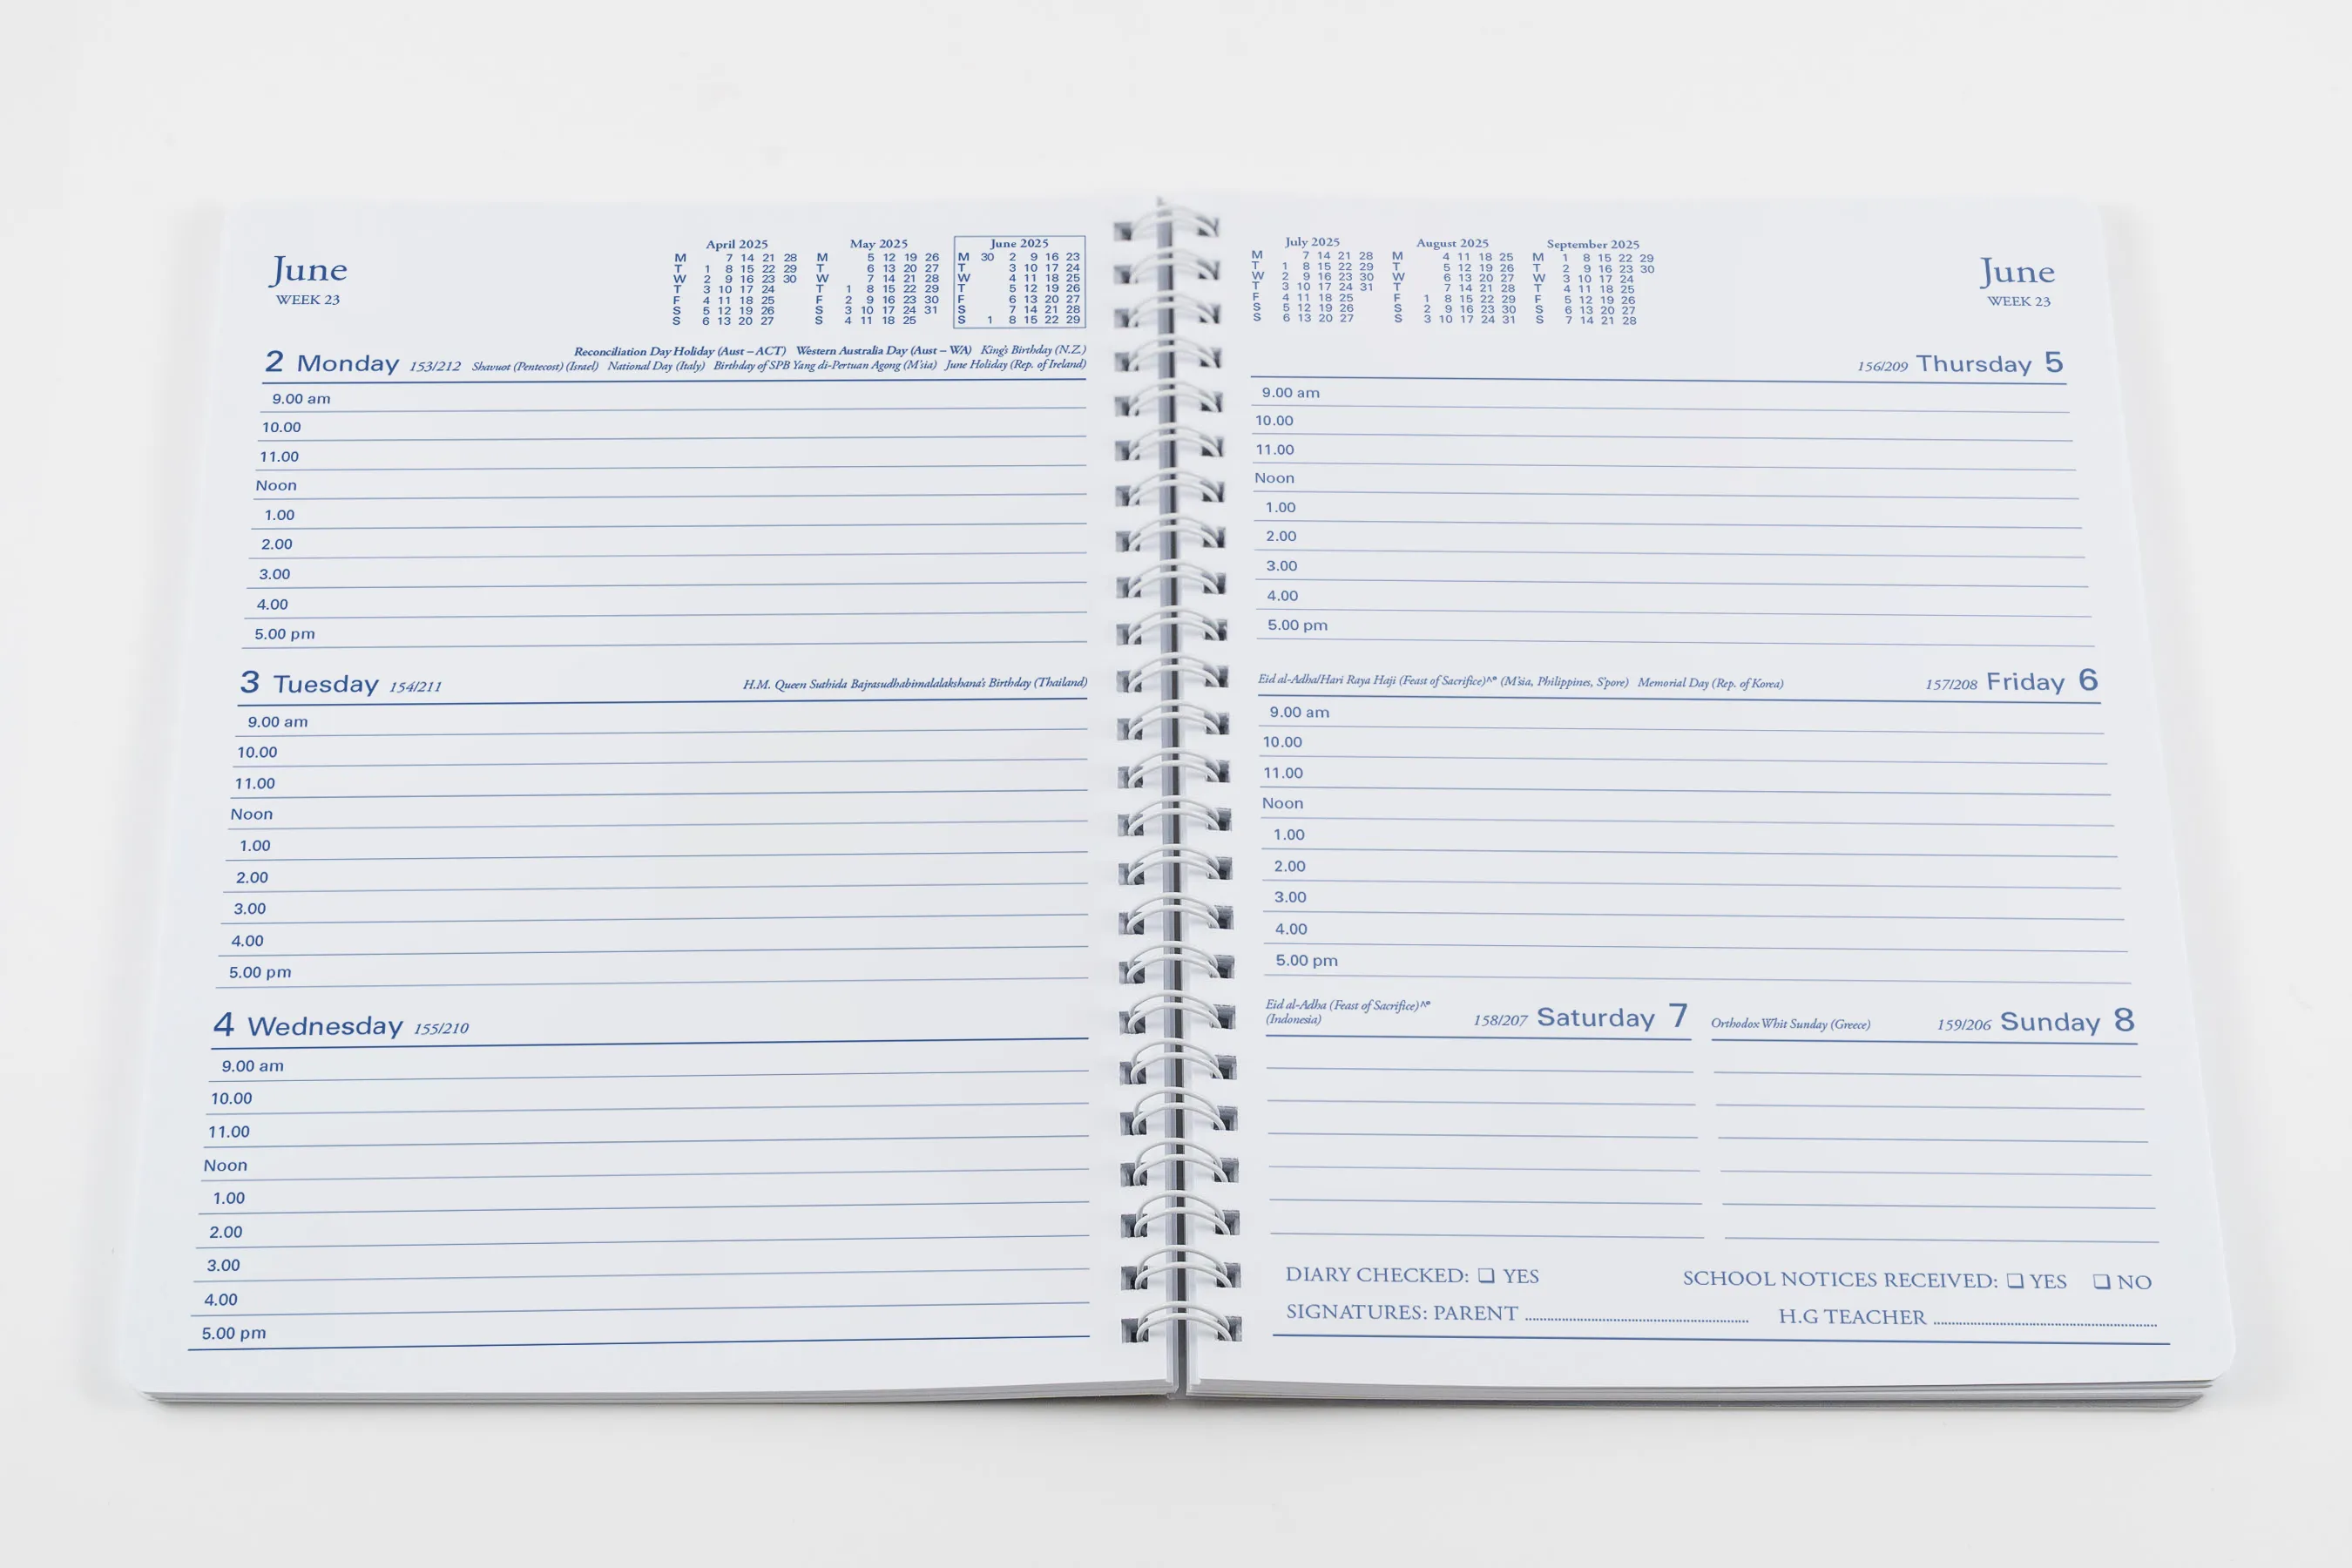 June
WEEK 23
April 2025
M 7 14 21 28
T 1 8 15 22 29
W 2 9 16 23 30
T 3 10 17 24
F 4 11 18 25
S 5 12 19 26
S 6 13 20 27
May 2025
M 5 12 19 26
T 6 13 20 27
W 7 14 21 28
T 1 8 15 22 29
F 2 9 16 23 30
S 3 10 17 24 31
S 4 11 18 25
June 2025
M 30 2 9 16 23
T 3 10 17 24
W 4 11 18 25
T 5 12 19 26
F 6 13 20 27
S 7 14 21 28
S 1 8 15 22 29
2 Monday 153/212
Reconciliation Day Holiday (Aust – ACT) Western Australia Day (Aust – WA) King's Birthday (N.Z.)
Shavuot (Pentecost) (Israel) National Day (Italy) Birthday of SPB Yang di-Pertuan Agong (M'sia) June Holiday (Rep. of Ireland)
9.00 am
10.00
11.00
Noon
1.00
2.00
3.00
4.00
5.00 pm
3 Tuesday 154/211 H.M. Queen Suthida Bajrasudhabimalalakshana's Birthday (Thailand)
9.00 am
10.00
11.00
Noon
1.00
2.00
3.00
4.00
5.00 pm
4 Wednesday 155/210
9.00 am
10.00
11.00
Noon
1.00
2.00
3.00
4.00
5.00 pm
July 2025
M 7 14 21 28
T 1 8 15 22 29
W 2 9 16 23 30
T 3 10 17 24 31
F 4 11 18 25
S 5 12 19 26
S 6 13 20 27
August 2025
M 4 11 18 25
T 5 12 19 26
W 6 13 20 27
T 7 14 21 28
F 1 8 15 22 29
S 2 9 16 23 30
S 3 10 17 24 31
September 2025
M 1 8 15 22 29
T 2 9 16 23 30
W 3 10 17 24
T 4 11 18 25
F 5 12 19 26
S 6 13 20 27
S 7 14 21 28
June
WEEK 23
156/209 Thursday 5
9.00 am
10.00
11.00
Noon
1.00
2.00
3.00
4.00
5.00 pm
Eid al-Adha/Hari Raya Haji (Feast of Sacrifice)^* (M'sia, Philippines, S'pore) Memorial Day (Rep. of Korea) 157/208 Friday 6
9.00 am
10.00
11.00
Noon
1.00
2.00
3.00
4.00
5.00 pm
Eid al-Adha (Feast of Sacrifice)^*
(Indonesia)
158/207 Saturday 7
Orthodox Whit Sunday (Greece) 159/206 Sunday 8
DIARY CHECKED: ❑ YES SCHOOL NOTICES RECEIVED: ❑ YES ❑ NO
SIGNATURES: PARENT ........................................ H.G TEACHER ........................................